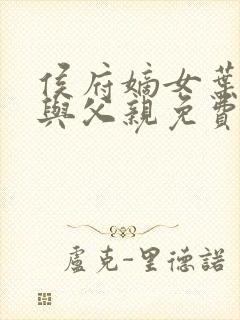 侯府嫡女葉
與父親免費
盧克-里德諾